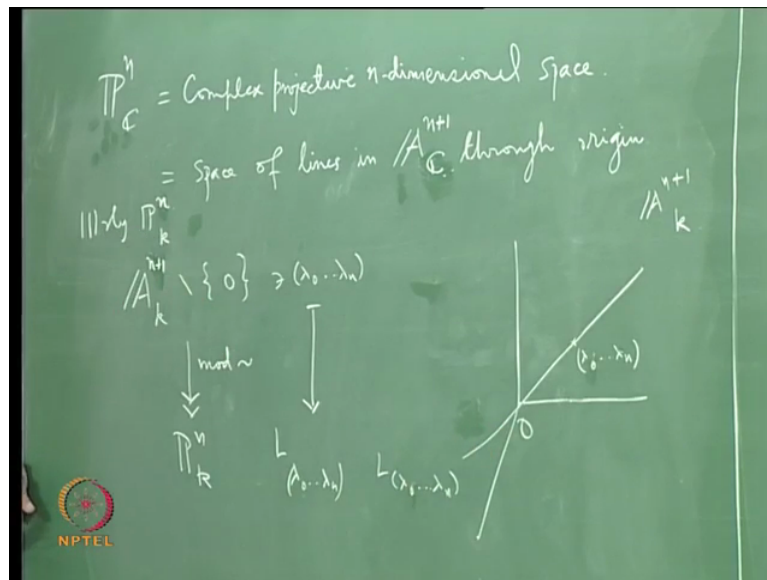 ℙⁿ_ℂ = Complex projective n-dimensional space.
= Space of lines in 𝔸ⁿ⁺¹_ℂ through origin
|||rly ℙⁿ_k
𝔸ⁿ⁺¹_k
𝔸ⁿ⁺¹_k \ {0} ∋ (λ₀...λₙ)
(λ₀...λₙ)
mod ~
0
ℙⁿ_k L_(λ₀...λₙ) L_(λ₀...λₙ)
NPTEL